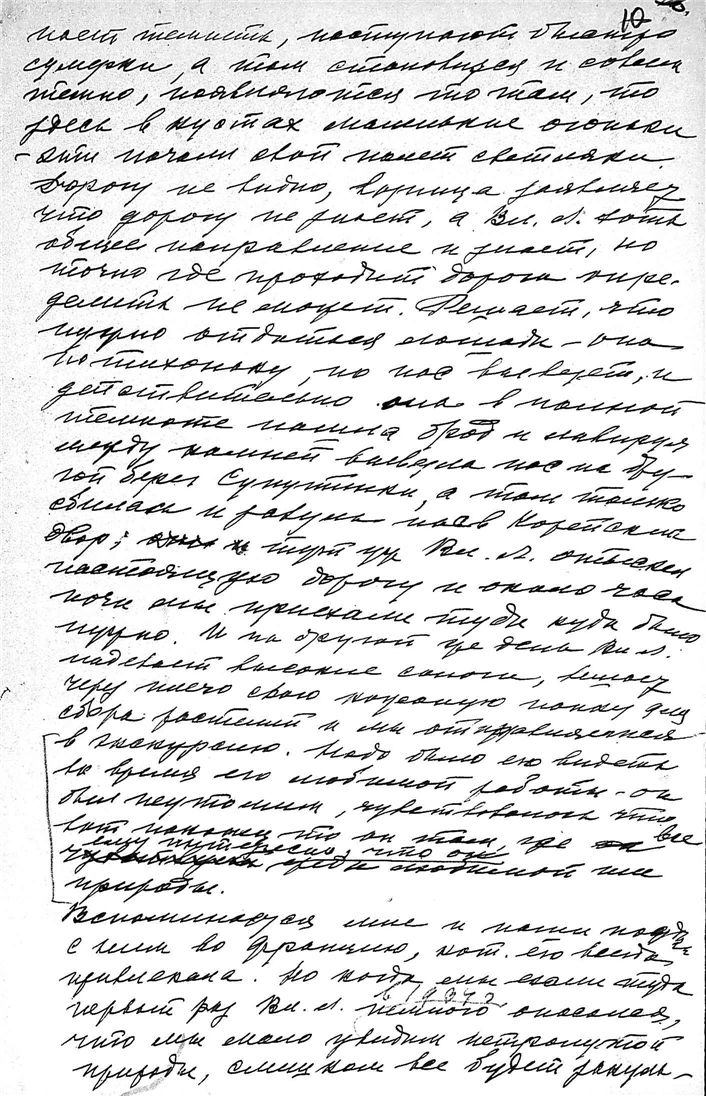 10
нает темнеть, наступают быстро
сумерки, а там становится и совсем
темно, появляются то там, то
здесь в кустах маленькие огоньки
- это начали свой полет светляки.
Дорогу не видно, возница заявляет
что дорогу не знает, а Вл. Л. хоть
общее направление и знает, но
точно где проходит дорога опре-
делить не может. Решает, что
нужно отдаться лошади - она
потихоньку, но нас вывезет, и
действительно она в полной
темноте нашла брод и лавируя
между камней вывезла нас на дру-
гой берег Супутинки, а там только
сбилась и завезла нас в Корейский
двор; тут уж Вл. Л. отыскал
настоящую дорогу и около часа
ночи мы приехали туда куда было
нужно. И на другой же день Вл. Л.
надевает высокие сапоги, вешает
через плечо свою кожаную папку для
сбора растений и мы отправляемся
в экскурсию. Надо было его видеть
во время его любимой работы - он
был неутомим, чувствовалось что
вот наконец то он там, где все
ему интересно, что он
среди любимой им
природы.
Вспоминается мне и наши поезд-
с ним во Францию, кот. его всегда
привлекала. Но когда мы ехали туда
1937 г.
первый раз Вл. Л. немного опасался,
что мы мало увидим нетронутой
природы, слишком все будет закуль-